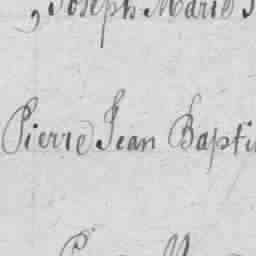 , Joseph Marie
Pierre Jean Bapti